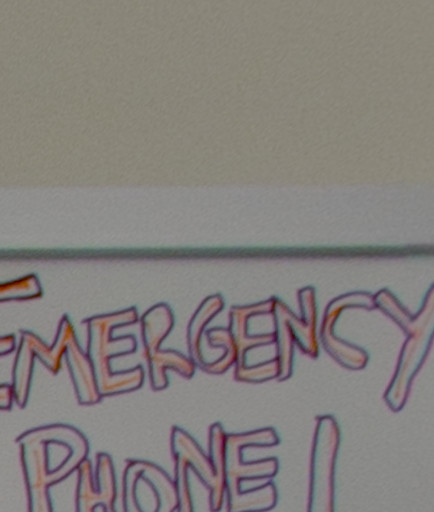 EMERGENCY
PHONE